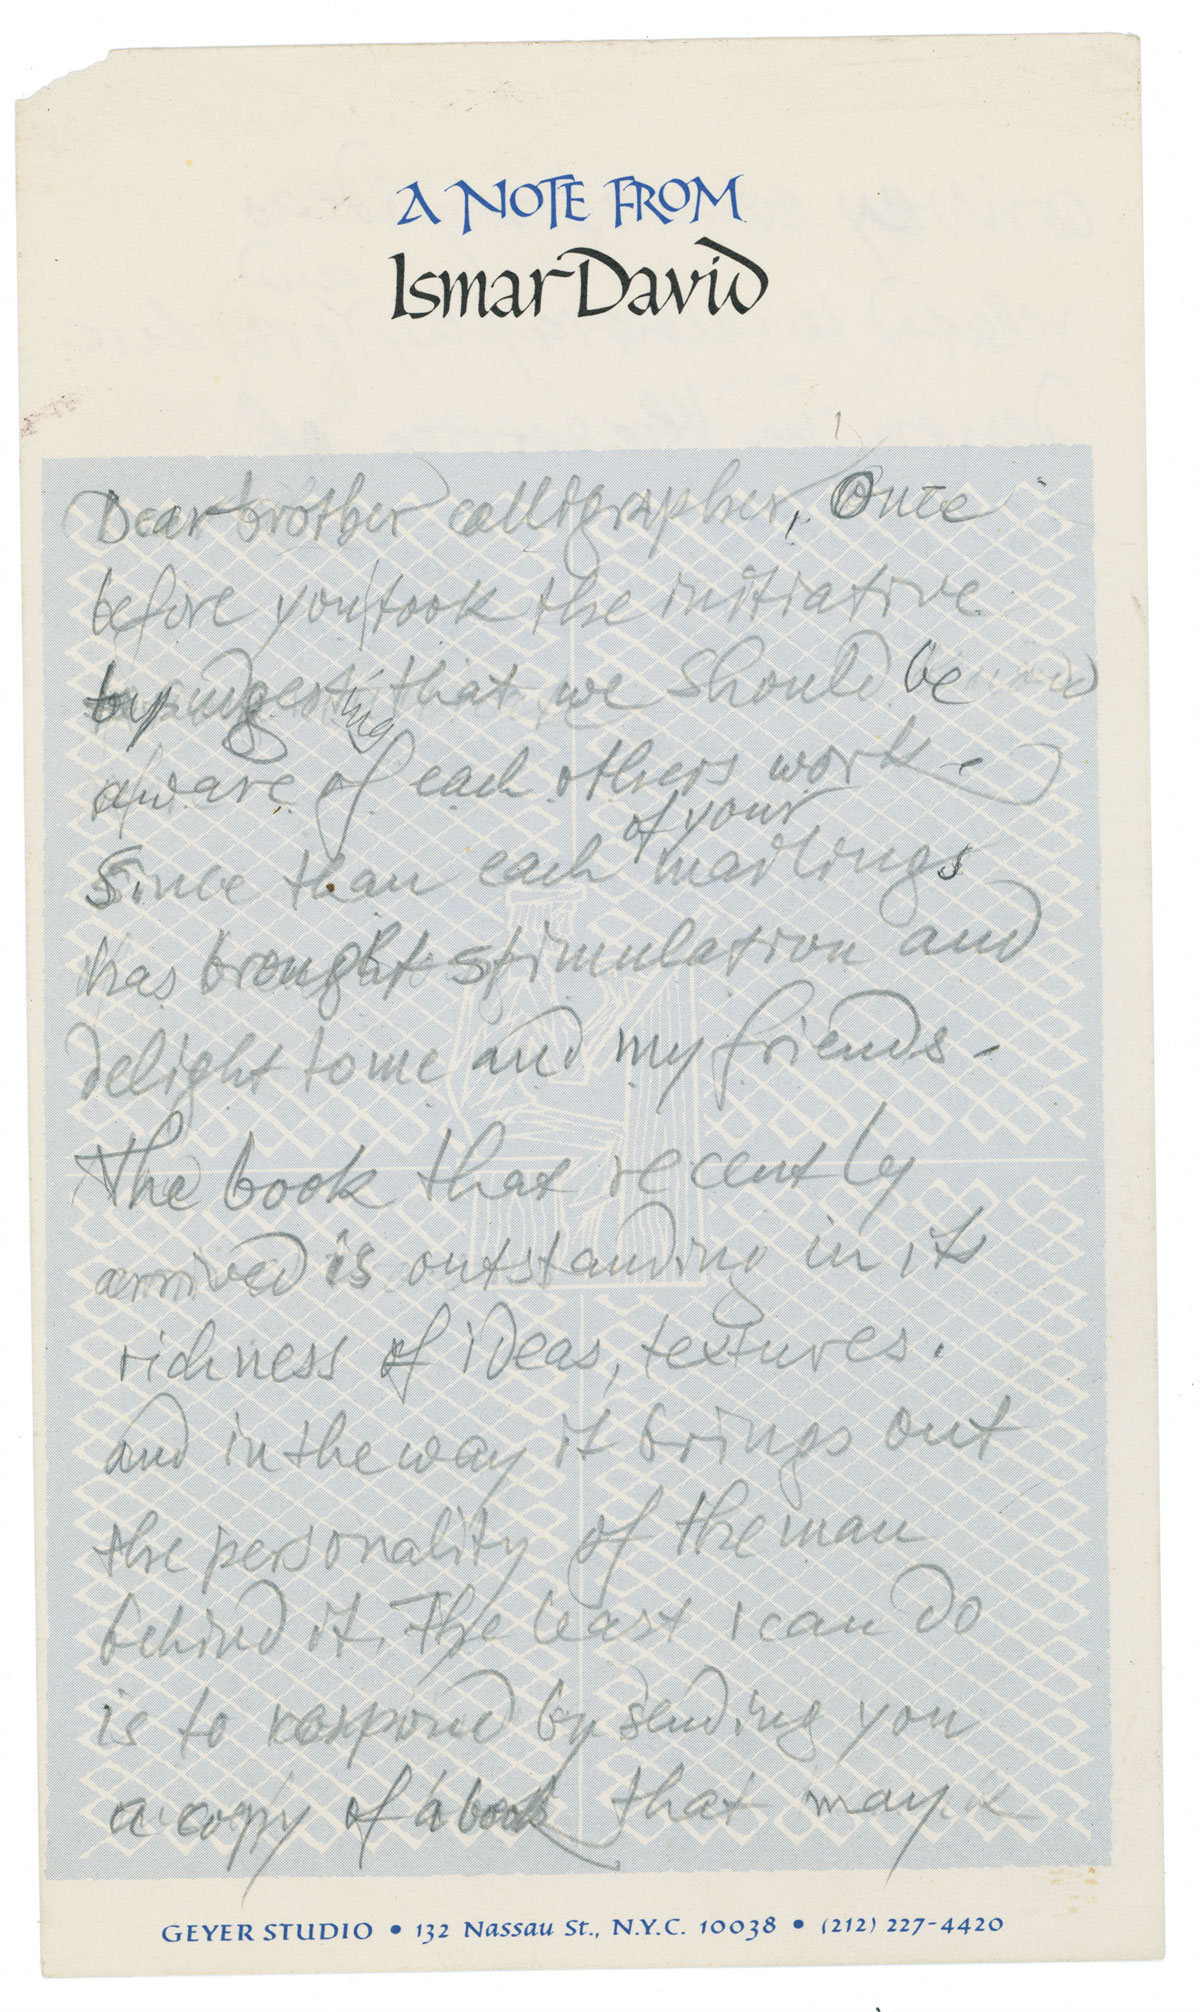 A NOTE FROM
Ismar David
Dear brother calligrapher, Once
before you took the initiative
by suggesting that we should be
aware of each others work -
of your
Since than each mailings
has brought stimulation and
delight to me and my friends -
The book that recently
arrived is outstanding in its
richness of ideas, textures.
and in the way it brings out
the personality of the man
behind it. The least I can do
is to respond by sending you
a copy of a book that may
GEYER STUDIO • 132 Nassau St., N.Y.C. 10038 • (212) 227-4420